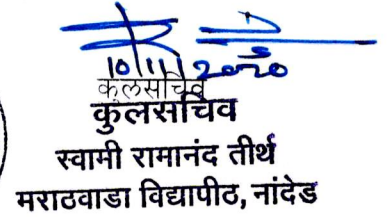 10/11/2020
कुलसचिव
कुलसचिव
स्वामी रामानंद तीर्थ
मराठवाडा विद्यापीठ, नांदेड